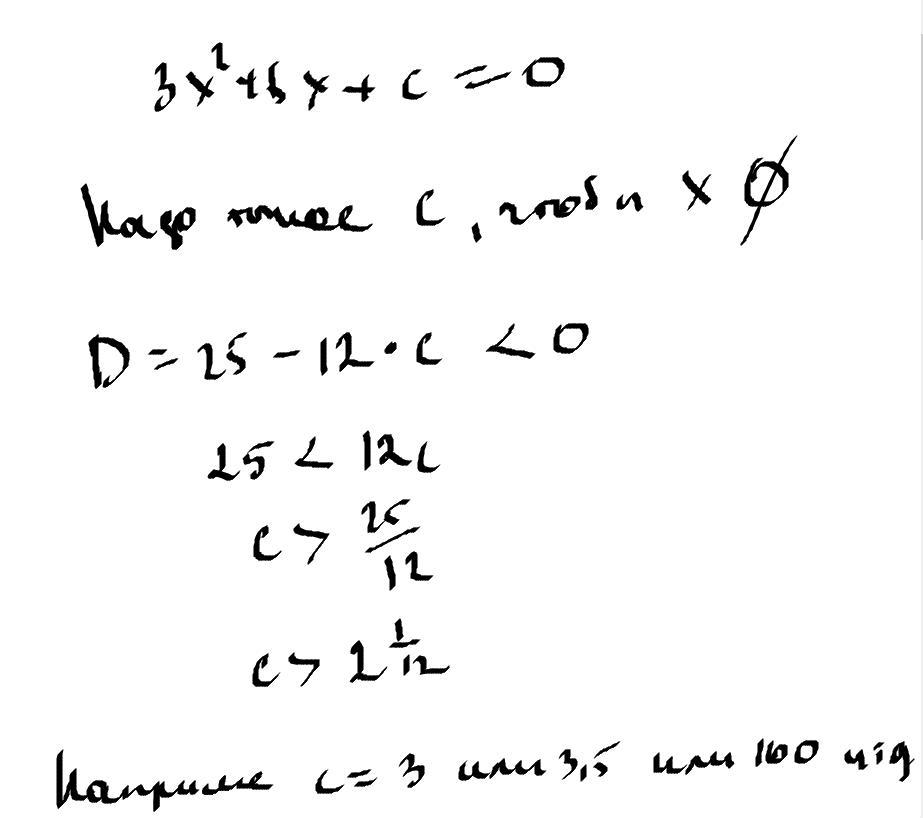 3x²+5x+c=0
Надо такое c, чтобы x ∅
D=25-12·c <0
25<12c
c>25/12
c>2 1/12
Например c=3 или 3,5 или 100 и т д